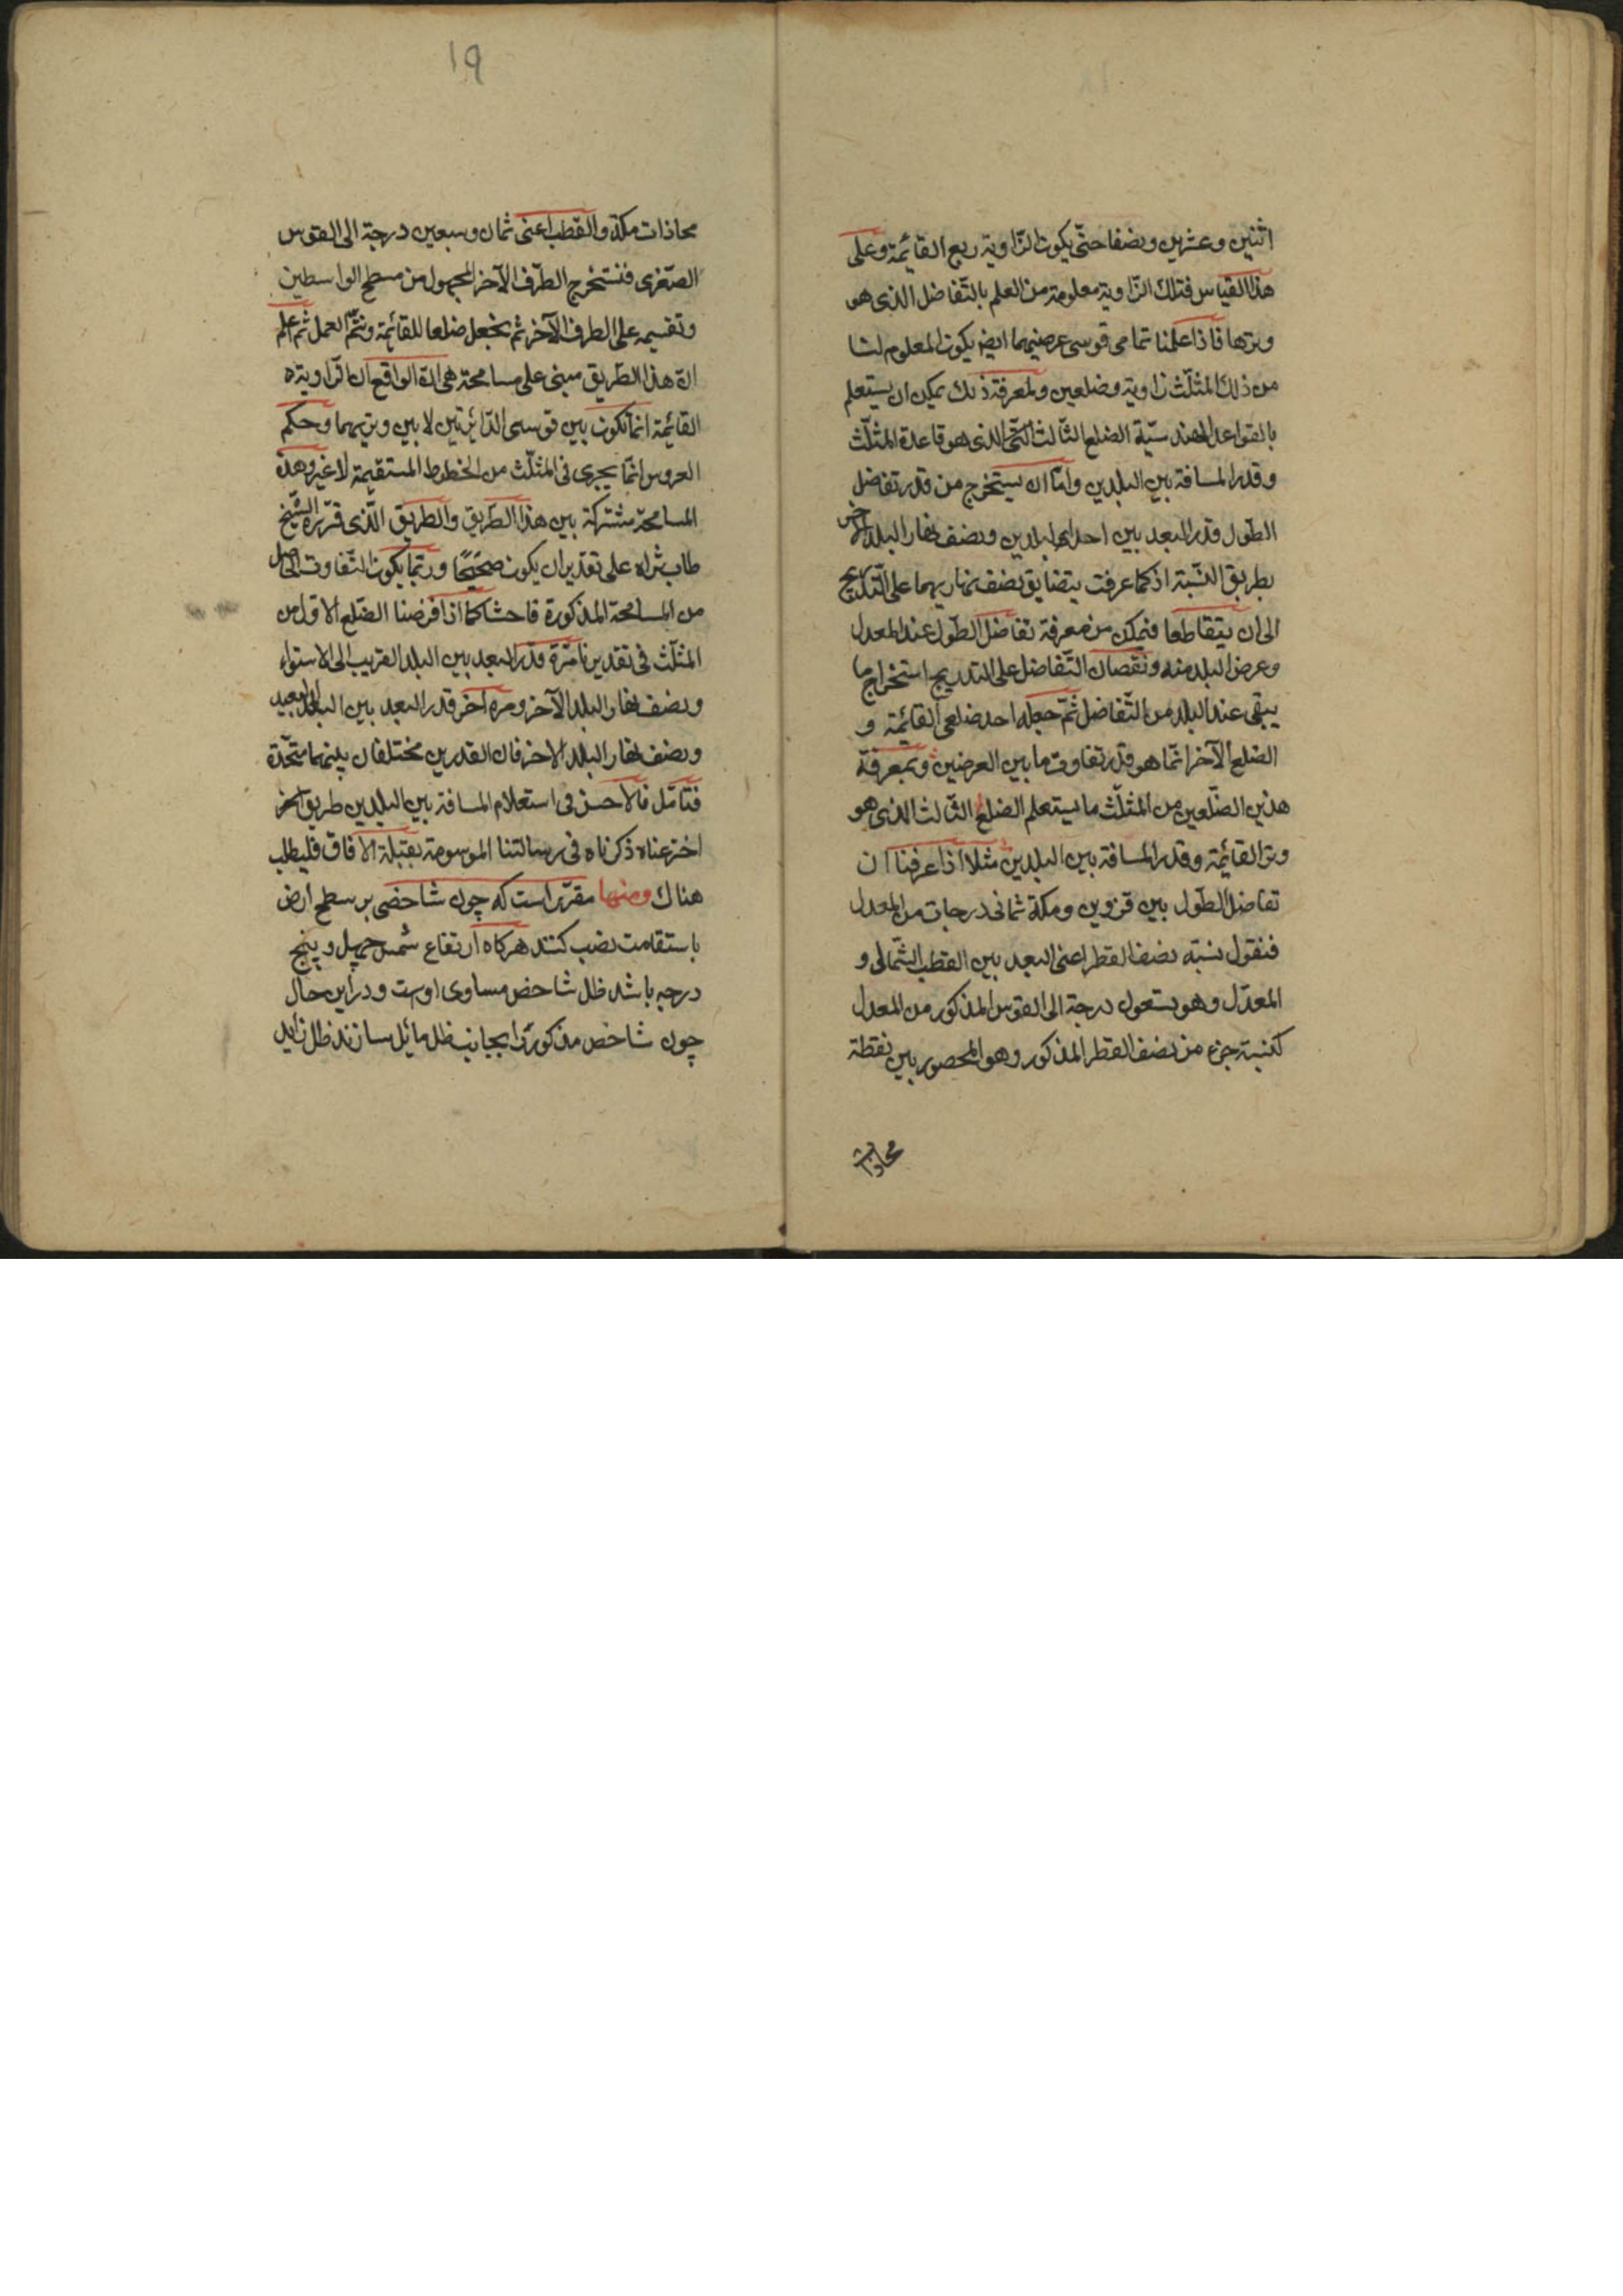 اثنين وعشرين ونصفا حتّى يكون الزّاوية ربع القائمة وعلى
هذا القياس فتلك الزّاوية معلومة من العلم بالتّفاضل الذى هو
وترها فاذا علمنا تمامى قوسى عرضيهما ايضا يكون المعلوم لنا
من ذلك المثلّث زاوية وضلعين ولمعرفة ذلك يمكن ان يستعلم
بالقواعد الهندسيّة الضلع الثّالث الذى هو قاعدة المثلّث
وقدر المسافة بين البلدين وامّا ان يستخرج من قدر تفاضل
الطّول قدر البعد بين احدى البلدين ونصف نهار البلد الآخر
بطريق النّسبة اذ كما عرفت يتضايق نصف نهاريهما على التّدريج
الى ان يتقاطعا فيمكن من معرفة تفاضل الطّول عند المعدل
وعرض البلد منه ونقصان التّفاضل على التدريج استخراج ما
يبقى عند البلد من التّفاضل ثمّ جعله احد ضلعى القائمة و
الضلع الآخر انّما هو قدر تفاوت ما بين العرضين وبمعرفة
هذين الضّلعين من المثلّث ما يستعلم الضلع الثّالث الذى هو
وتر القائمة وقدر المسافة بين البلدين مثلا اذا عرفنا ان
تفاضل الطّول بين قزوين ومكة ثمانى درجات من المعدل
فنقول نسبة نصف القطر اعنى البعد بين القطب الشّمالى و
المعدّل وهو تسعون درجة الى القوس المذكور من المعدل
كنسبة جزء من نصف القطر المذكور وهو المحصور بين نقطة
محاذات
١٩
محاذات مكة والقطب اعنى ثمان وسبعين درجة الى القوس
الصّغرى فنستخرج الطّرف الآخر المجهول من مسطح الواسطين
وتقسيمه على الطرف الآخر ثم نجعل ضلعا للقائمة ونتمّ العمل ثم اعلم
ان هذا الطّريق مبنى على مسامحة هى ان الواقع ان الزّاوية
القائمة انّما تكون بين قوسى الدّائرتين لا بين وتريهما وحكم
العروس انّما يجرى فى المثلّث من الخطوط المستقيمة لا غير وهذه
المسامحة مشتركة بين هذا الطّريق والطريق الّذى قرّره الشّيخ
طاب ثراه على تقدير ان يكون صحيحًا وربّما يكون التّفاوت الحاصل
من المسامحة المذكورة فاحشا كما اذا فرضنا الضّلع الاوّل من
المثلّث فى تقديرنا مرّة قدر البعد بين البلد القريب الى الاستواء
ونصف نهار البلد الآخر ومرة اخر قدر البعد بين البلد البعيد
ونصف نهار البلد الاخر فان القدرين مختلفان بينهما متّحدة
فتأمّل فالاحسن فى استعلام المسافة بين البلدين طريق آخر
اخترعناه ذكرناه فى رسالتنا الموسومة بقبلة الآفاق فليطلب
هناك ومنها مقرّر است كه چون شاخصى بر سطح ارض
باستقامت نصب كنند هركاه ارتفاع شمس چهل و پنج
درجه باشد ظل شاخص مساوى اوست و دراين حال
چون شاخص مذكور را بجانب ظل مائل سازند ظل زايد